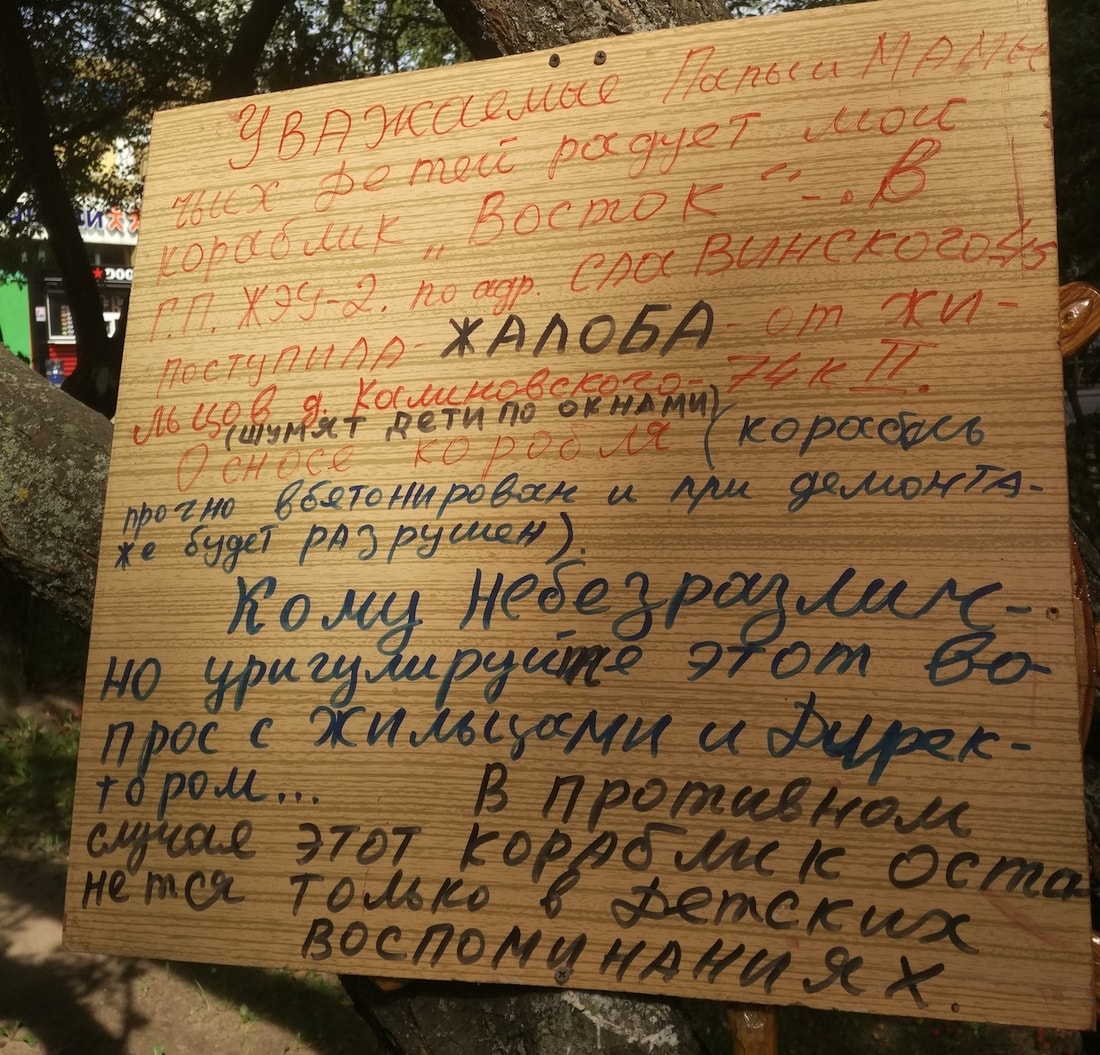 Уважаемые Папы и МАМы
чьих Детей радует мой
кораблик „Восток“ –. В
Г.П. ЖЭУ-2. по адр. СЛАВИНСКОГО-45
поступила- ЖАЛОБА -от жи-
льцов д. Калиновского- 74 к II.
(шумят дети по окнами)
О сносе коробля (корабль
прочно вбетонирован и при демонта-
же будет разрушен).
Кому небезразлич-
но уригулируйте этот во-
прос с Жильцами и Дирек-
тором... В противном
случае этот кораблик оста
нется только в Детских
воспоминаниях.